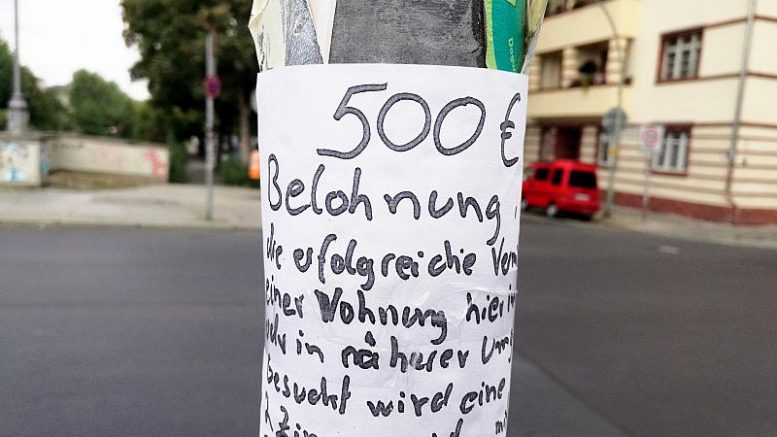 500 €
Belohnung
die erfolgreiche Verm
einer Wohnung hier i
oder in näherer Umg
Gesucht wird eine
2 Zim